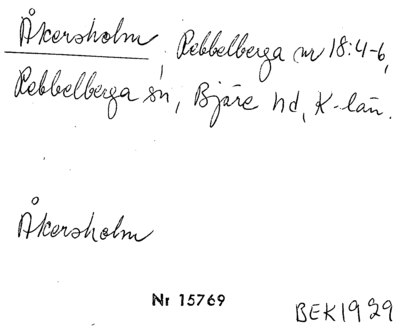 Åkersholm, Rebbelberga nr 18:4-6,
Rebbelberga sn, Bjäre hd, K-län.
Åkersholm
Nr 15769
BEK1929